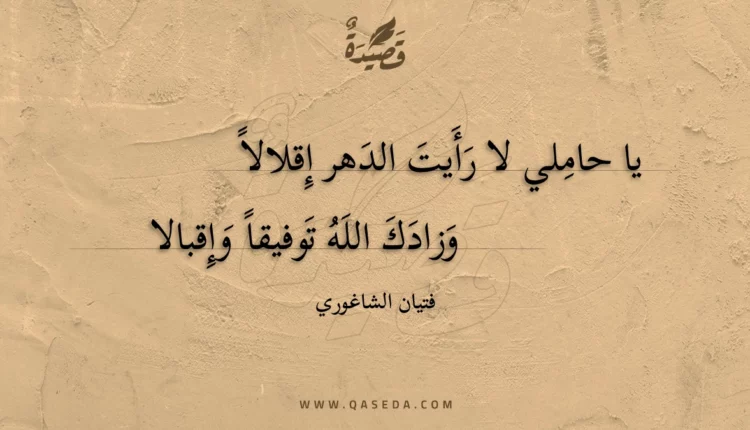 قَصِيدَةٌ
يا حامِلي لا رَأَيتَ الدَهر إِقلالاً
وَزادَكَ اللَهُ تَوفيقاً وَإِقبالا
فتيان الشاغوري
WWW.QASEDA.COM